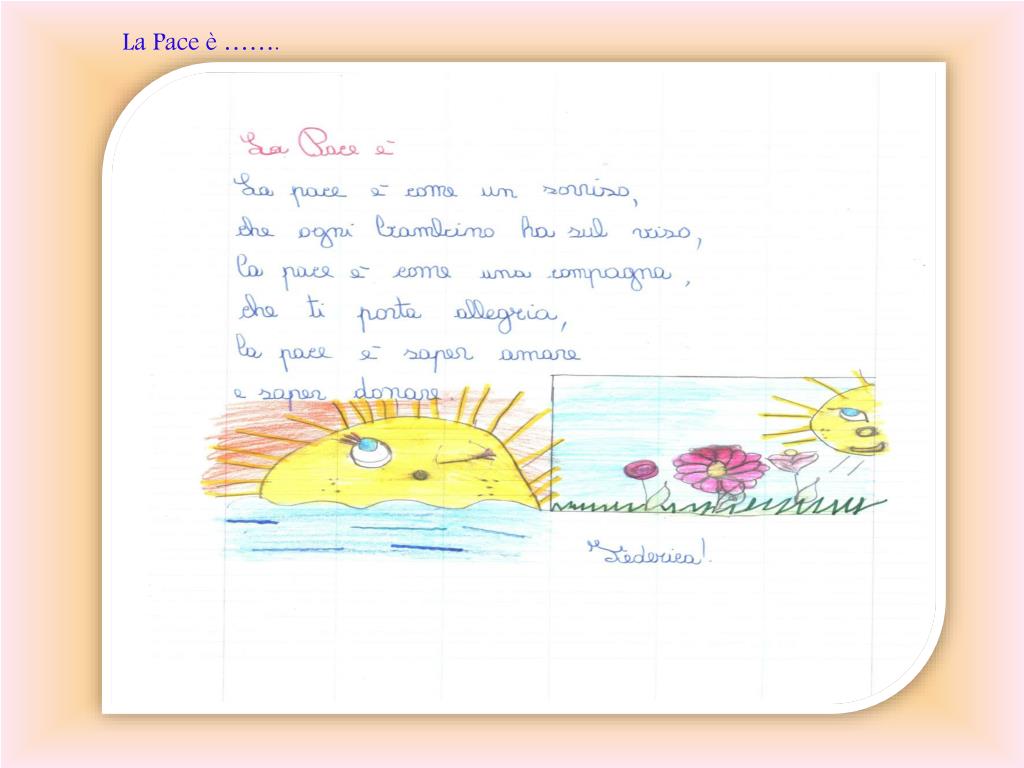 La Pace è …….
La Pace è
La pace è come un sorriso,
che ogni bambino ha sul viso,
la pace è come una compagna,
che ti porta allegria,
la pace è saper amare
e saper donare.
Federica!